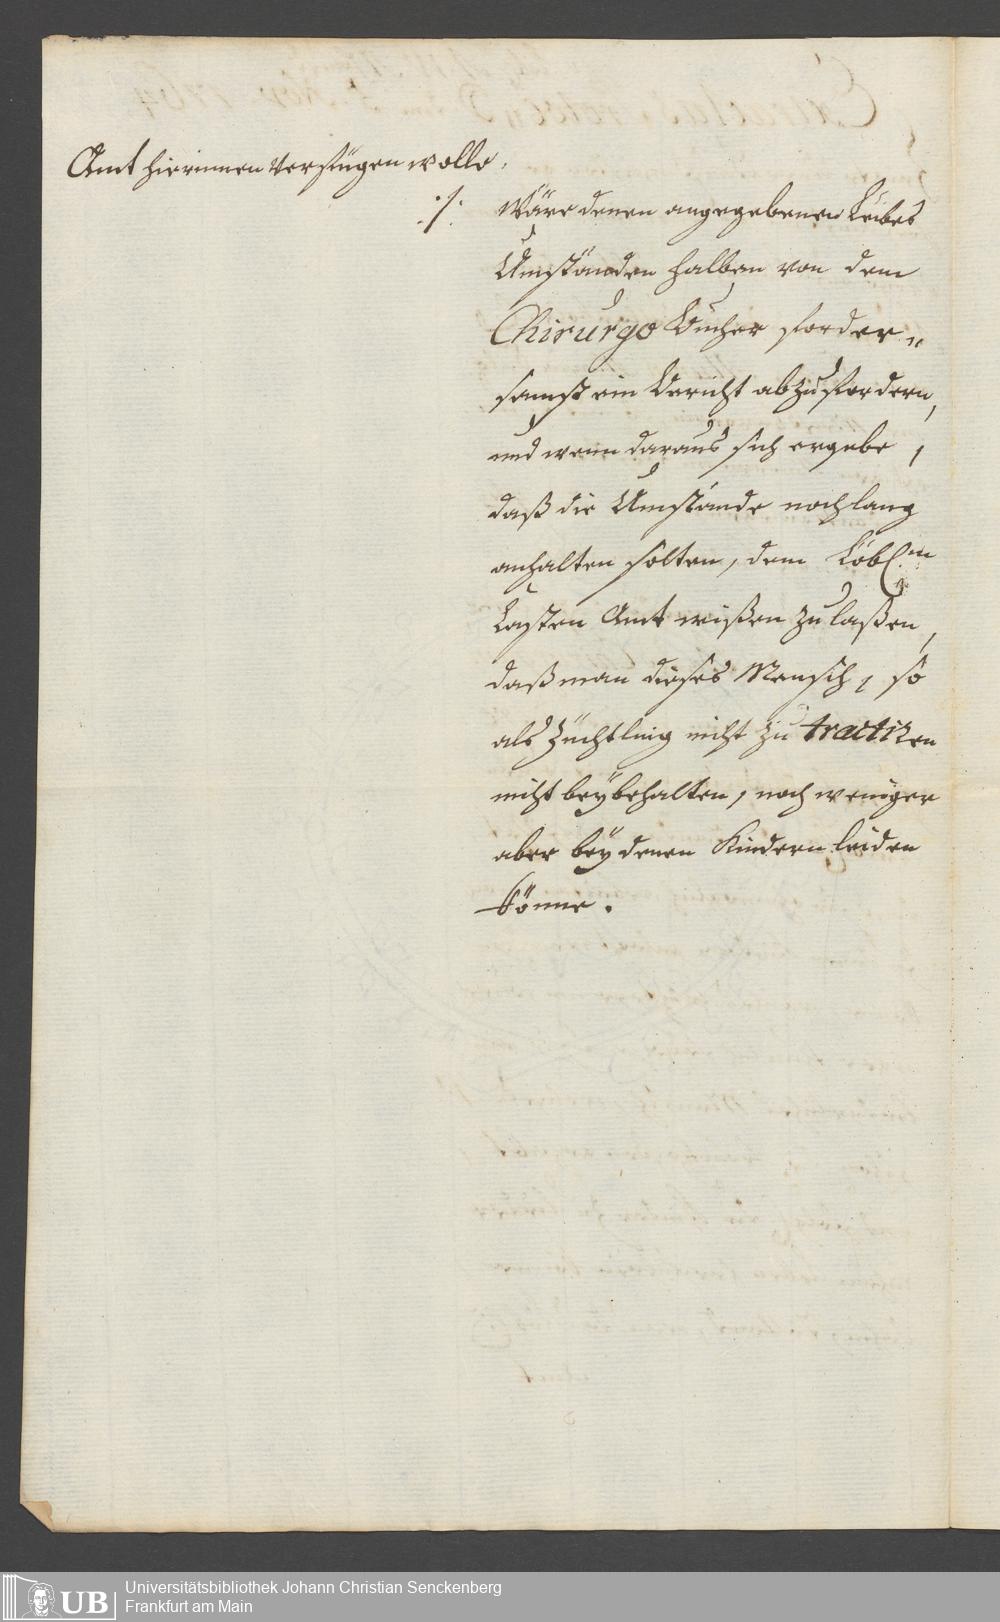 Amt hierinnen verfügen wolle.
./. Wäre denen angegebenen Leibes
Umständen halben von dem
Chirurgo Bucher forder„
samst ein Bericht abzufordern,
und wenn daraus sich ergebe,
daß die Umstände noch lang
anhalten solten, dem Löbl.m
Kasten Amt wißen zu laßen,
daß man dieses Mensch, so
als Züchtling nicht zu tractiren
nicht beybehalten, noch weniger
aber bey denen Kindern leiden
könne.
UB
Universitätsbibliothek Johann Christian Senckenberg
Frankfurt am Main